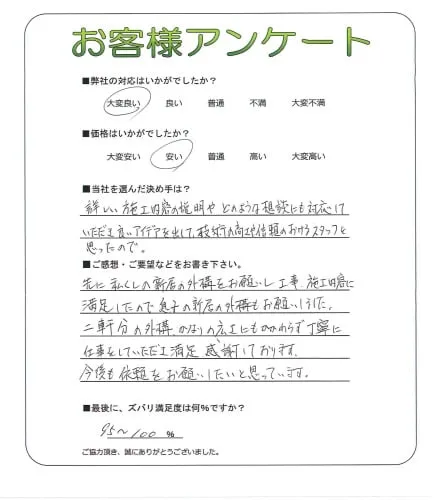 お客様アンケート
■弊社の対応はいかがでしたか?
大変良い 良い 普通 不満 大変不満
■価格はいかがでしたか?
大変安い 安い 普通 高い 大変高い
■当社を選んだ決め手は?
詳しい施工内容の説明やどのような想談にも対応して
いただき良いアイデアを出して、技術の向上や信頼のおけるスタッフと
思ったので。
■ご感想・ご要望などをお書き下さい。
先に私くしの新居の外構をお願いし工事、施工内容に
満足したので息子の新居の外構もお願いしました。
二軒分の外構、かなりの広さにもかかわらず丁寧に
仕事をしていただき満足、感謝しております。
今後も依頼をお願いしたいと思っています。
■最後に、ズバリ満足度は何%ですか?
95~100 %
ご協力頂き、誠にありがとうございました。